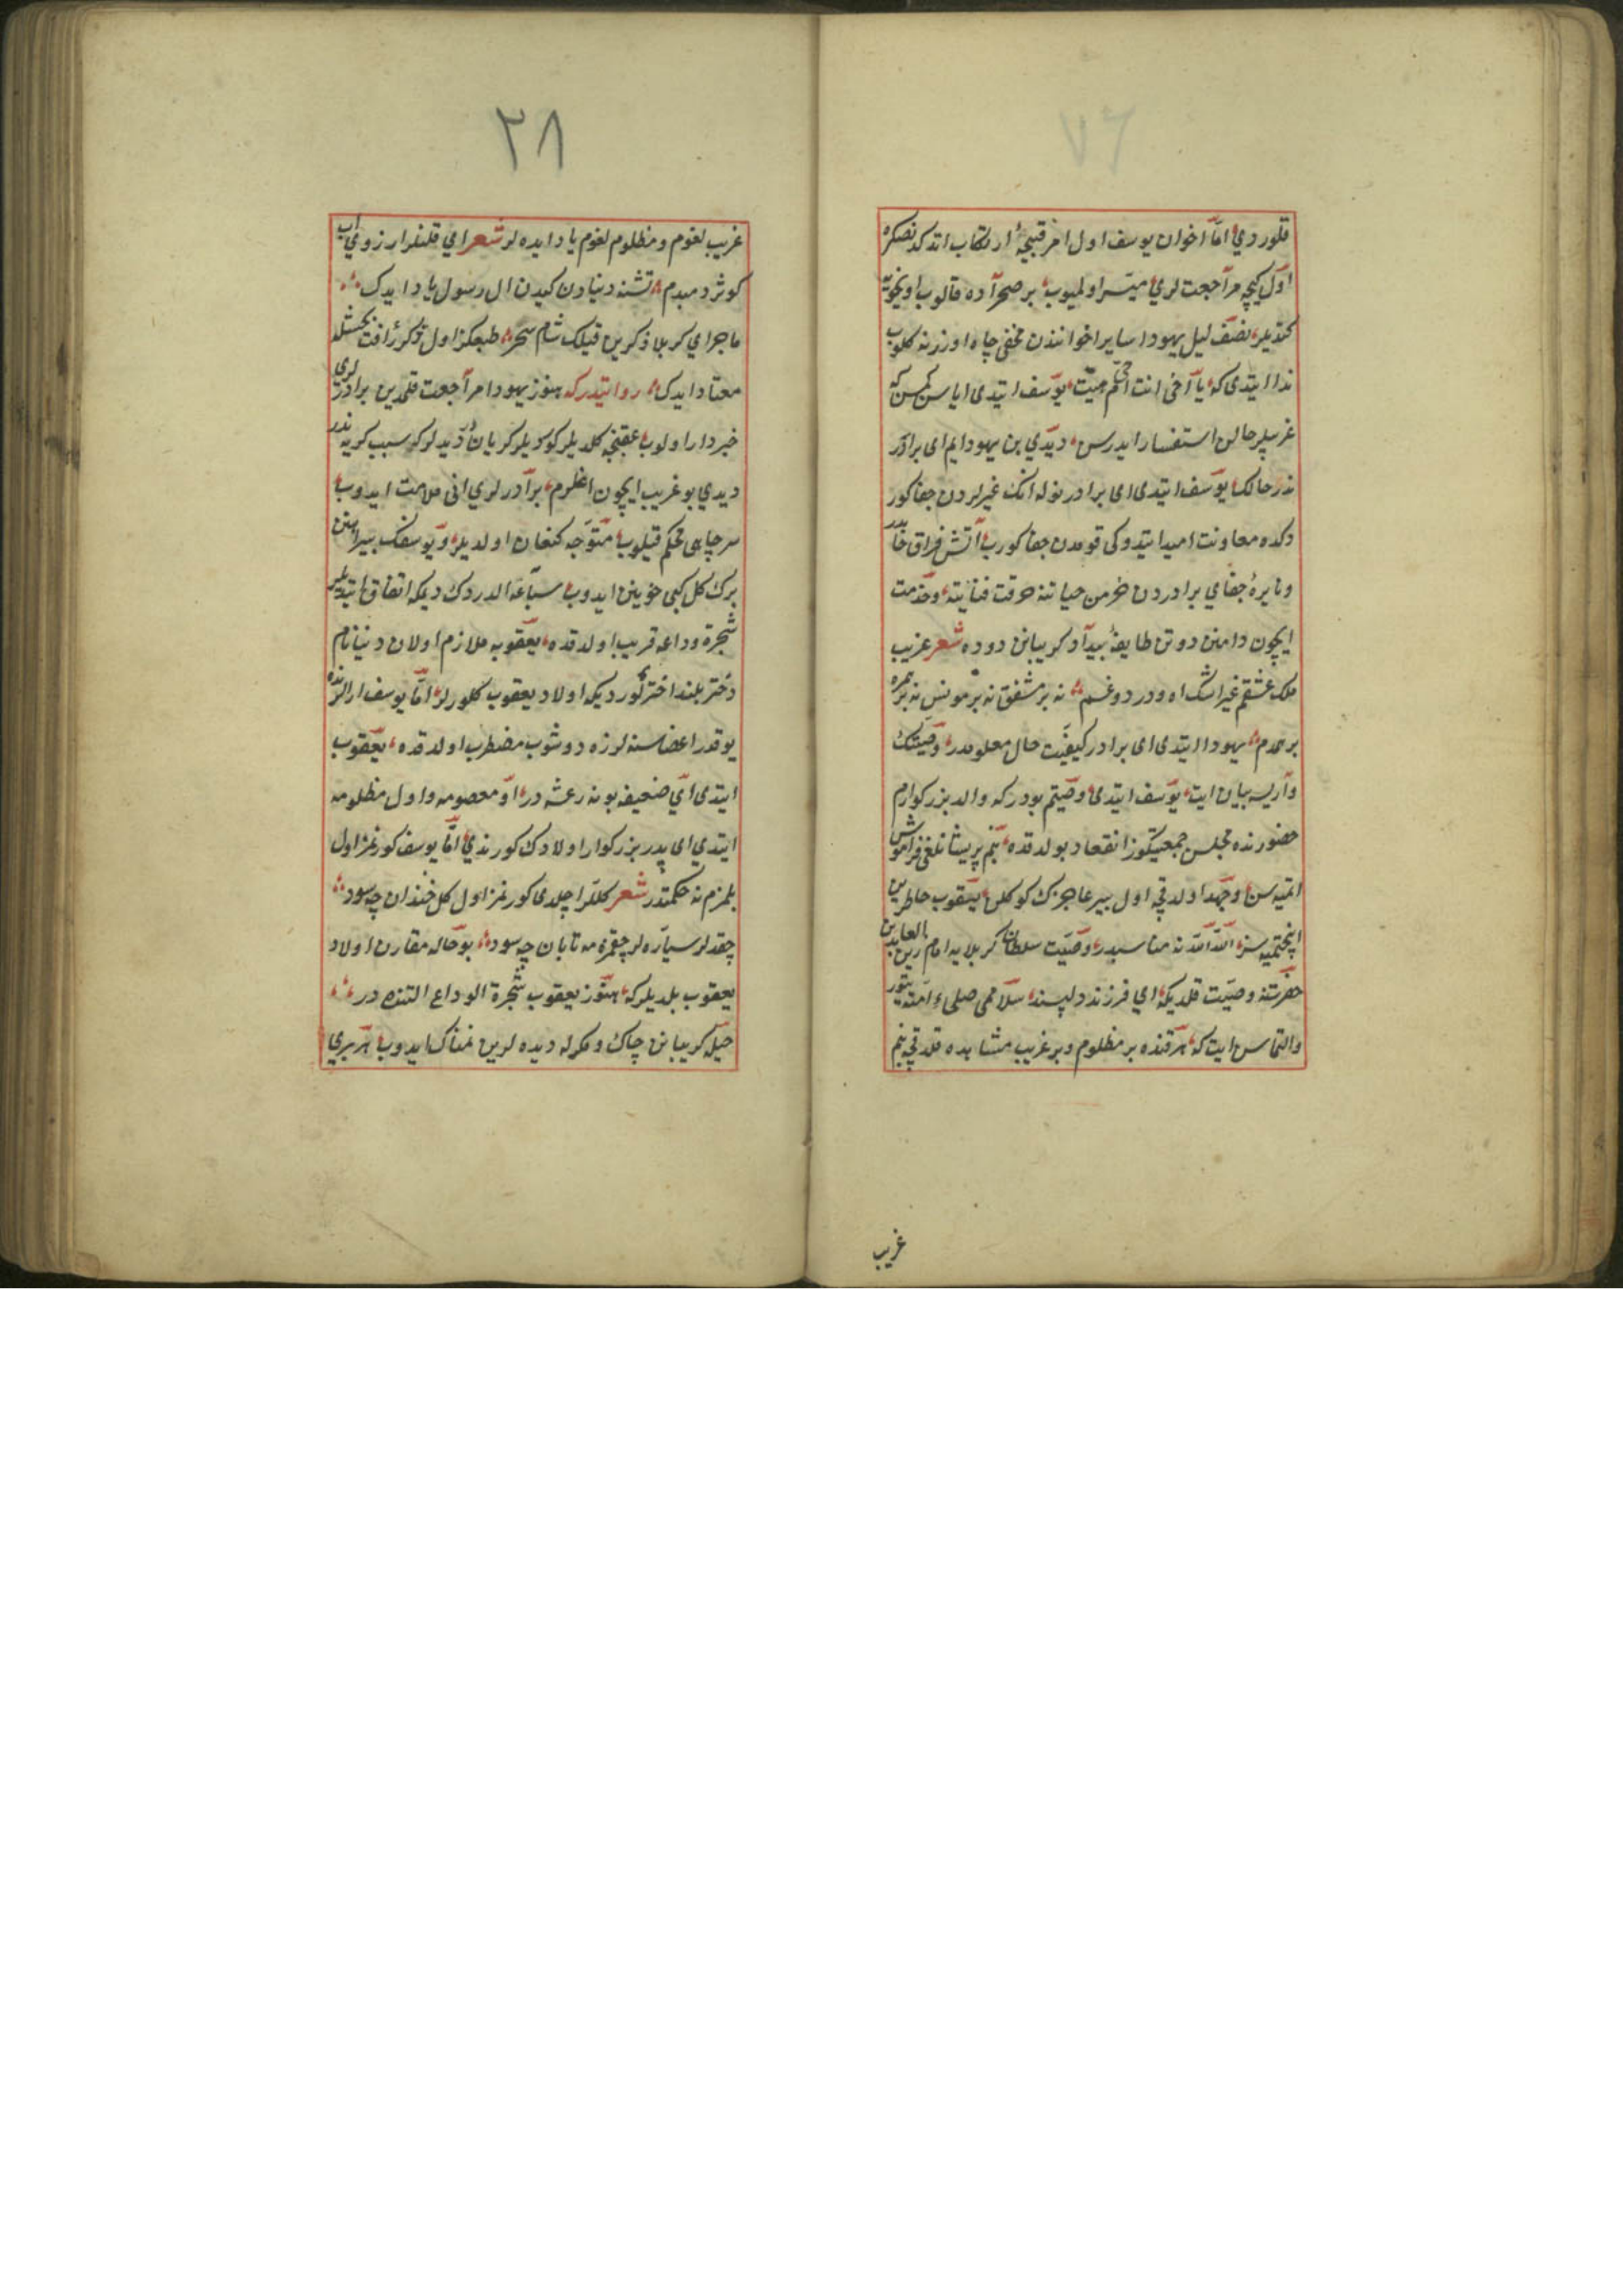 ٧٦
قلوردی اما اخوان یوسف اول امر قبیحهٔ ارتکاب اتدکدنصکره
اول کیجه مراجعت لری میسر اولمیوب بر صحراده قالوب اویخویه
کتدیلر نصف لیل یهودا سایر اخوانندن مخفی چاه اوزرنه کلوب
ندا ایتدی که یا اخی انت حی ام میت یوسف ایتدی ایا سن کمسن که
غریبلر حالن استفسار ایدرسن دیدی بن یهودایم ای برادر
ندر حالک یوسف ایتدی ای برادر نوله انک غیرلردن جفا کور
دکده معاونت امید ایتدوکی قومدن جفا کورب اتش فراق پدر
ونایرهٔ جفای برادردن خرمن حیاتنه حرقت فنا یته وخدمت
ایچون دامنن دوتن طایفهٔ بیداد کریبانن دوده شعر غریب
ملک عشقم غیر اشک اه ودرد وغم نه بر مشفق نه بر مونس نه بر همره
بر همدم یهودا ایتدی ای برادر کیفیت حال معلومدر وصیتک
وار ایسه بیان ایت یوسف ایتدی وصیتم بودر که والد بزرکوارم
حضورنده مجلس جمعیتکوز انعقاد بولدقده بنم پریشانلغم فراموش
اتمیه سز وجهد اولدقجه اول پیر عاجزک کوکلن ییقوب خاطرین
اینجتمیه سز الله الله نه مناسبدر وصیت سلطان کربلایه امام زین العابدین
حضرتنه وصیت قلدیکه ای فرزند دلپسند سلامی صلی ء امته یتور
والتماس ایت که هر قنده بر مظلوم وبر غریب مشاهده قلدقجه بنم
غریب
٣٨
غریب لغوم ومظلوم لغوم یاد ایده لر شعر ای قلنلر ارزوی اب
کوثر دمبدم تشنه دنیادن کیدن ال رسول یاد ایدک
ماجرای کربلا ذکرین قیلک شام سحر طبعکز اول ذکر رافت بخشله
معتاد ایدک روایتدر که هنوز یهودا مراجعت قلمدین برادرلری
خبردار اولوب عقبنجه کلدیلر کوردیلر کریان دیدلر که سبب کریه ندر
دیدی بو غریب ایچون اغلرم برادرلری انی ملامت ایدوب
سر چاهی محکم قیلوب متوجه کنعان اولدیلر ویوسفک پیراهنن
برک کل کبی خونین ایدوب سباعه الدردک دیمکه اتفاق ایتدیلر
شجرهٔ وداعه قریب اولدقده یعقوبه ملازم اولان دنیا نام
دختر بلند اختر کوردیکه اولاد یعقوب کلورلر اما یوسف ارالرنده
یوقدر اعضاسنه لرزه دوشوب مضطرب اولدقده یعقوب
ایتدی ای ضعیفه بو نه رعشه در او معصومه واول مظلومه
ایتدی ای پدر بزرکوار اولادک کورندی اما یوسف کورنمز اول
بلمزم نه حکمتدر شعر کللر اچلدی کورنمز اول کل خندان چه سود
چقدلر سیاره لر چقمزه مه تابان چه سود بو حاله مقارن اولاد
یعقوب بلدیلر که هنوز یعقوب شجرة الوداع التنده در
حیله کریبانن چاک ومکرله دیده لرین نمناک ایدوب هر بری